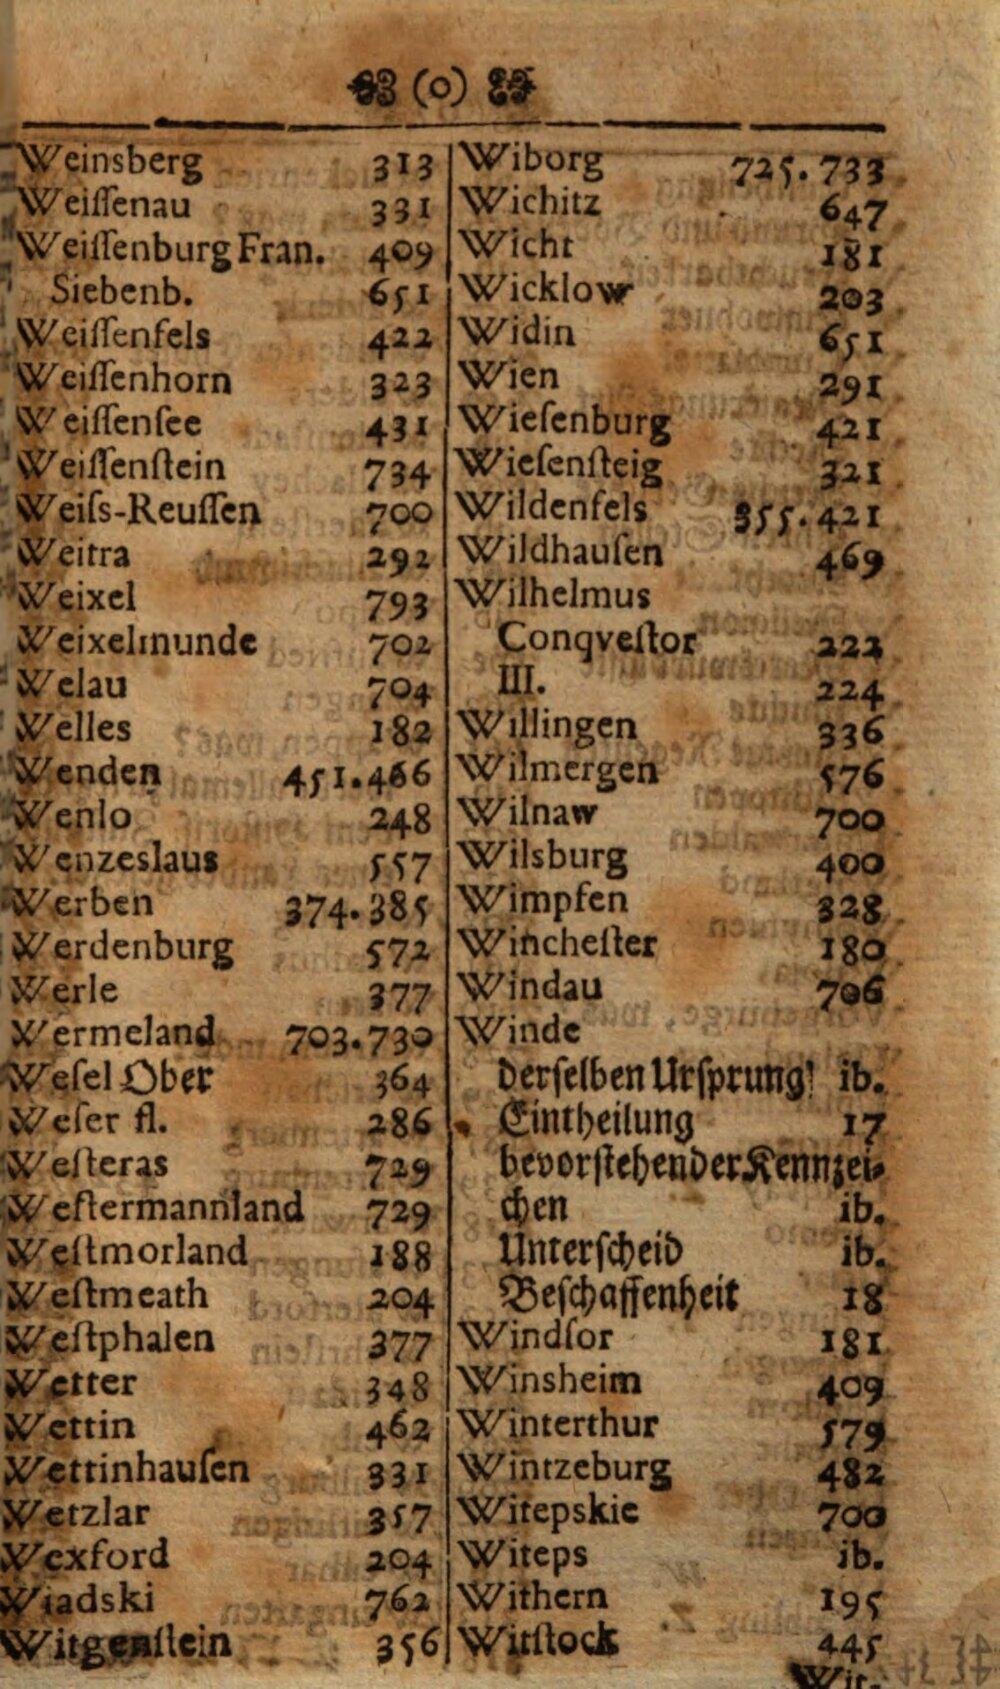 (o)
Weinsberg 313
Weiſſenau 331
Weiſſenburg Fran. 409
Siebenb. 651
Weiſſenfels 422
Weiſſenhorn 323
Weiſſenſee 431
Weiſſenſtein 734
Weiſs-Reuſſen 700
Weitra 292
Weixel 793
Weixelmunde 702
Welau 704
Welles 182
Wenden 451.466
Wenlo 248
Wenzeslaus 557
Werben 374.385
Werdenburg 572
Werle 377
Wermeland 703.730
Weſel Ober 364
Weſer fl. 286
Weſteras 729
Weſtermannland 729
Weſtmorland 188
Weſtmeath 204
Weſtphalen 377
Wetter 348
Wettin 462
Wettinhauſen 331
Wetzlar 357
Wexford 204
Wiadski 762
Witgenſtein 356
Wiborg 725.733
Wichitz 647
Wicht 181
Wicklow 203
Widin 651
Wien 291
Wieſenburg 421
Wieſenſteig 321
Wildenfels 355.421
Wildhauſen 469
Wilhelmus
Conqveſtor 222
III. 224
Willingen 336
Wilmergen 576
Wilnaw 700
Wilsburg 400
Wimpfen 328
Wincheſter 180
Windau 706
Winde
derſelben Urſprung ib.
Eintheilung 17
bevorſtehender Kennzei-
chen ib.
Unterſcheid ib.
Beſchaffenheit 18
Windſor 181
Winsheim 409
Winterthur 579
Wintzeburg 482
Witepskie 700
Witeps ib.
Withern 195
Witſtock 445
Wit-